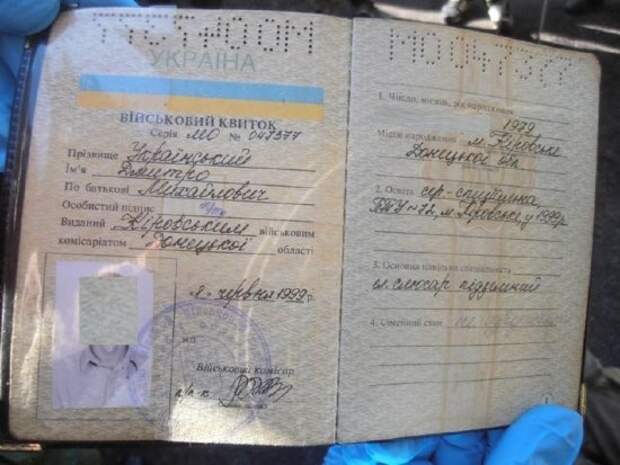 УКРАЇНА
ВІЙСЬКОВИЙ КВИТОК
Серія МО № 047377
Прізвище Український
Ім'я Дмитро
По батькові Михайлович
Особистий підпис
Виданий Кіровським військовим
комісаріатом Донецької області
8 червня 1999 р.
Військовий комісар
МО 047377
1. Число, місяць, рік народження
1979
Місце народження м. Кіровське
Донецької обл
2. Освіта сер-спеціальна
ПТУ-72, м. Кіровське, у 1999р
3. Основна цивільна спеціальність
ел. слюсар підземний
4. Сімейний стан не
1